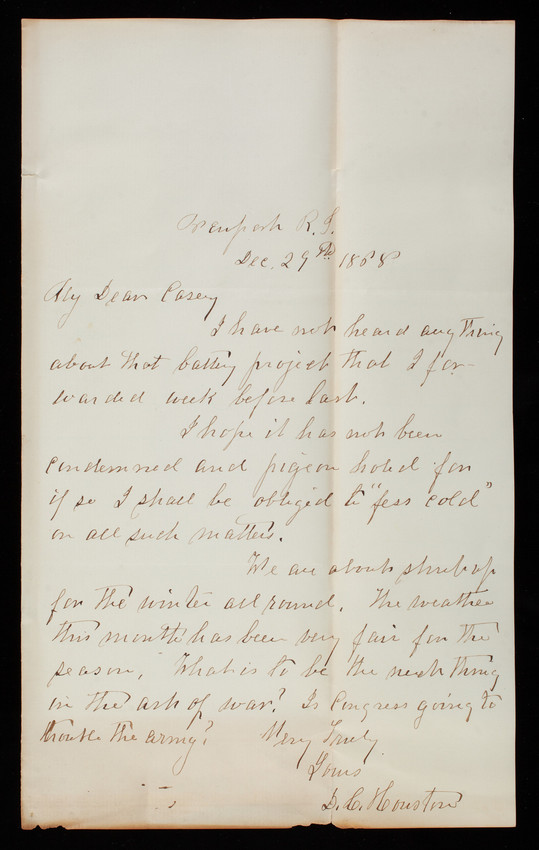 Newport R.I.
Dec. 29th 1868
My Dear Casey
I have not heard anything
about that battery project that I for-
warded week before last.
I hope it has not been
condemned and pigeon holed for
if so I shall be obliged to "fess cold"
on all such matters.
We are about shut up
for the winter all round. The weather
this month has been very fair for the
season. What is to be the next thing
in the art of war? Is Congress going to
trouble the army?
Very Truly
Yours
D.C. Houston